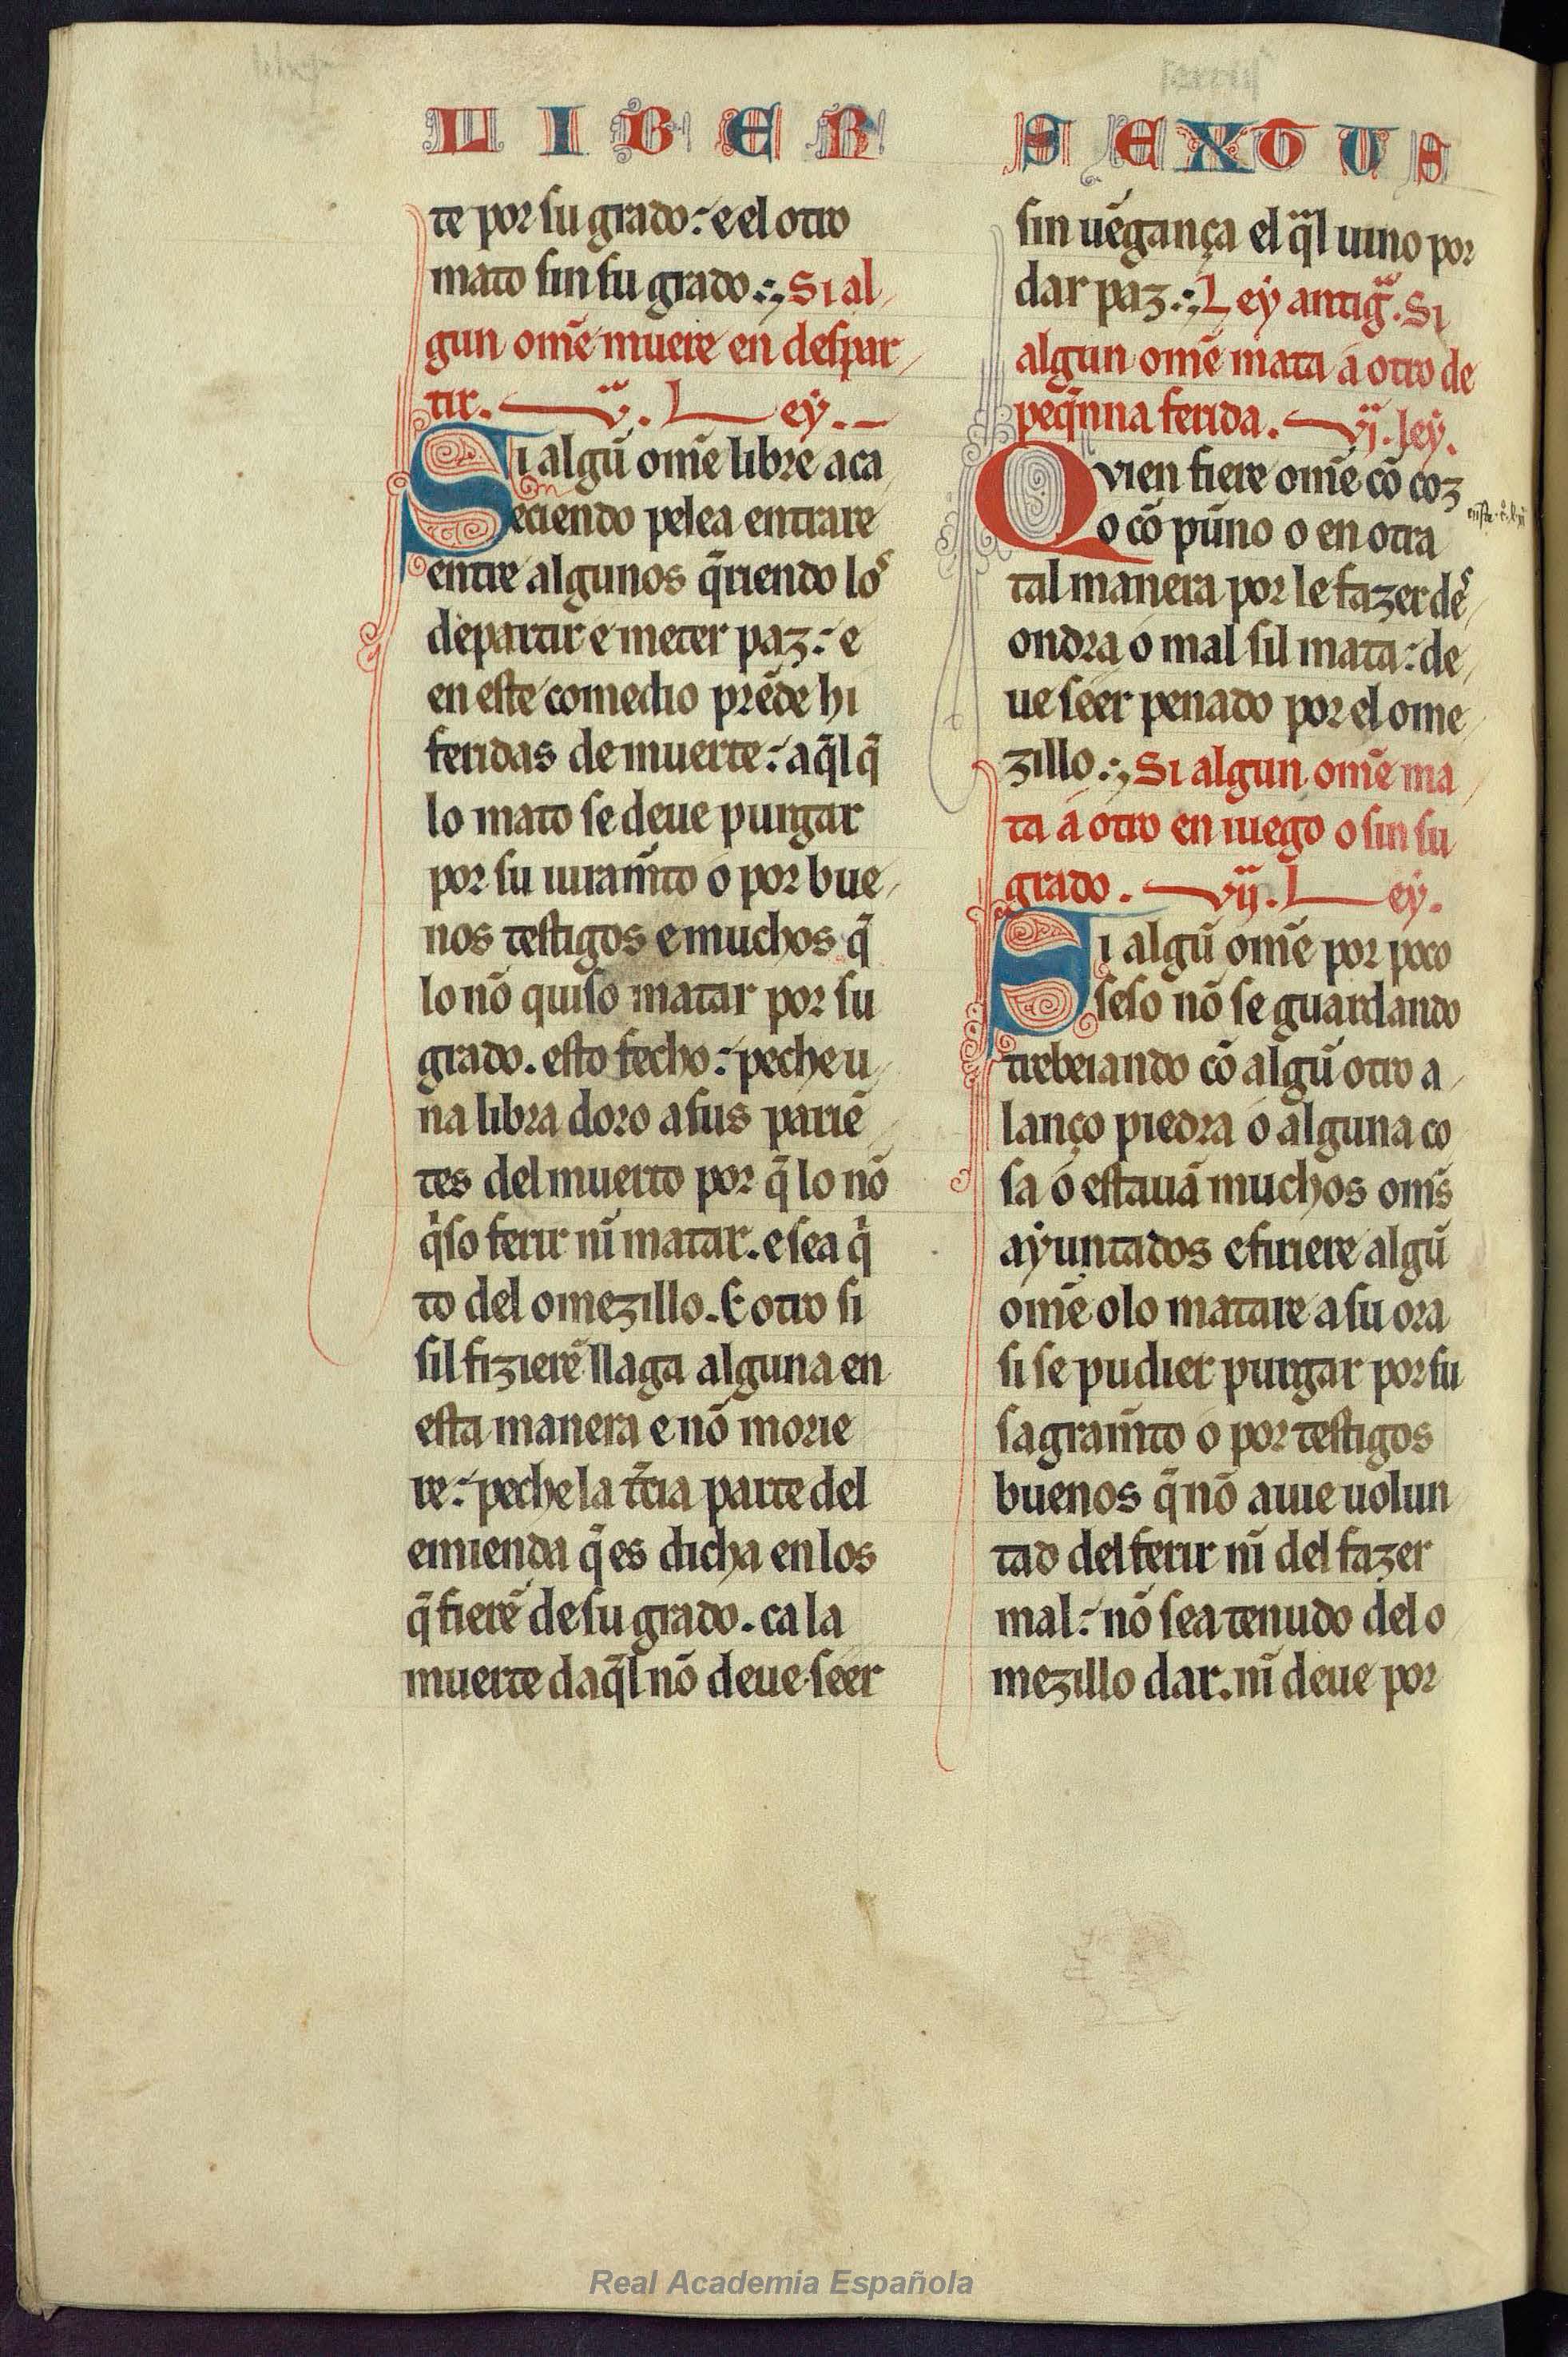 LIBER SEXTUS
te por su grado: e el otro
mato sin su grado. Si al
gun omē muere en despar
tir. v. Ley.
Si algū omē libre aca
eciendo pelea entrare
entre algunos q̄riendo los
departir e meter paz: e
en este comedio prēde hi
feridas de muerte: aq̄l q̄
lo mato se deue purgar
por su iuram̄to o por bue
nos testigos e muchos q̄
lo nō quiso matar por su
grado. esto fecho: peche u
na libra doro a sus pariē
tes del muerto por q̄ lo nō
q̍so ferir nī matar. e sea q̍
to del omezillo. E otro si
sil fizierē llaga alguna en
esta manera e nō morie
re: peche la t̄cia parte del
emienda q̄ es dicha en los
q̄ fierē de su grado. ca la
muerte daq̄l nō deue seer
sin uēgança el q̄l uino por
dar paz. Ley antig̃. Si
algun omē mata a otro de
peq̄nna ferida. vj. ley.
Qvien fiere omē cō coz
o cō pūno o en otra
tal manera por le fazer des
ondra o mal sil mata: de
ue seer penado por el ome
zillo. Si algun omē ma
ta a otro en iuego o sin su
grado. vij. Ley.
Si algū omē por poco
seso nō se guardando
trebeiando cō algū otro a
lanço piedra o alguna co
sa o estauā muchos om̄s
aẏuntados e firiere algū
omē o lo matare a su ora
si se pudier purgar por su
sagram̄to o por testigos
buenos q̄ nō auie uolun
tad del ferir nī del fazer
mal: nō sea tenudo del o
mezillo dar. nī deue por
Real Academia Española